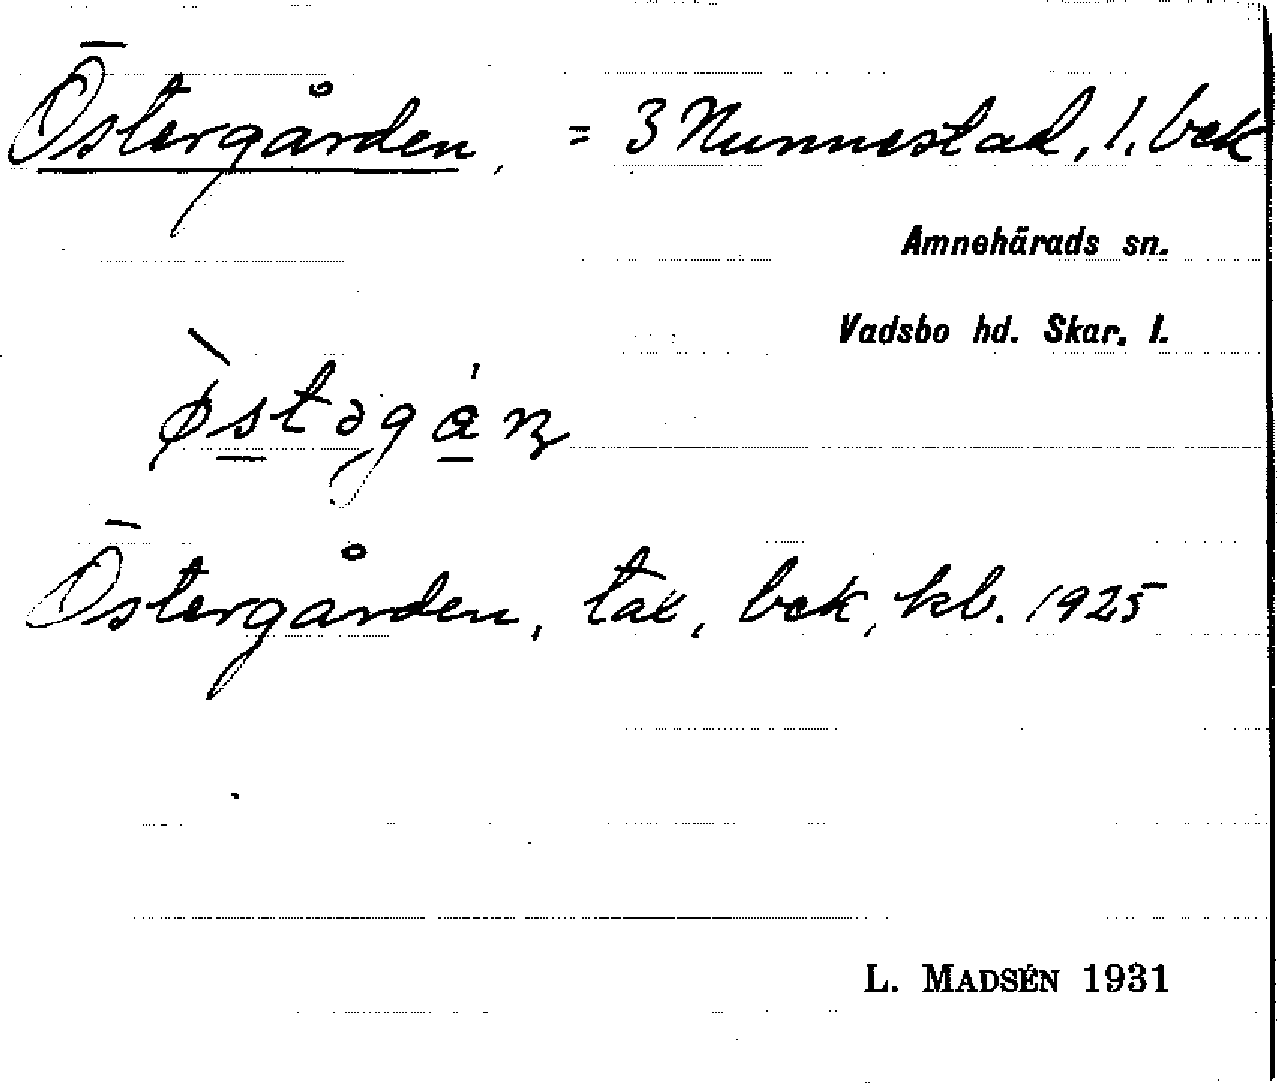 Östergården, = 3 Nunnestad, 1. bek
Amnehärads sn.
Vadsbo hd. Skar. l.
Östergården, tax, bek, kb. 1925
L. MADSÉN 1931